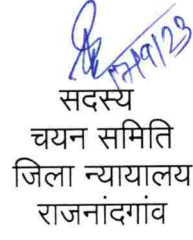 17/9/23
सदस्य
चयन समिति
जिला न्यायालय
राजनांदगांव